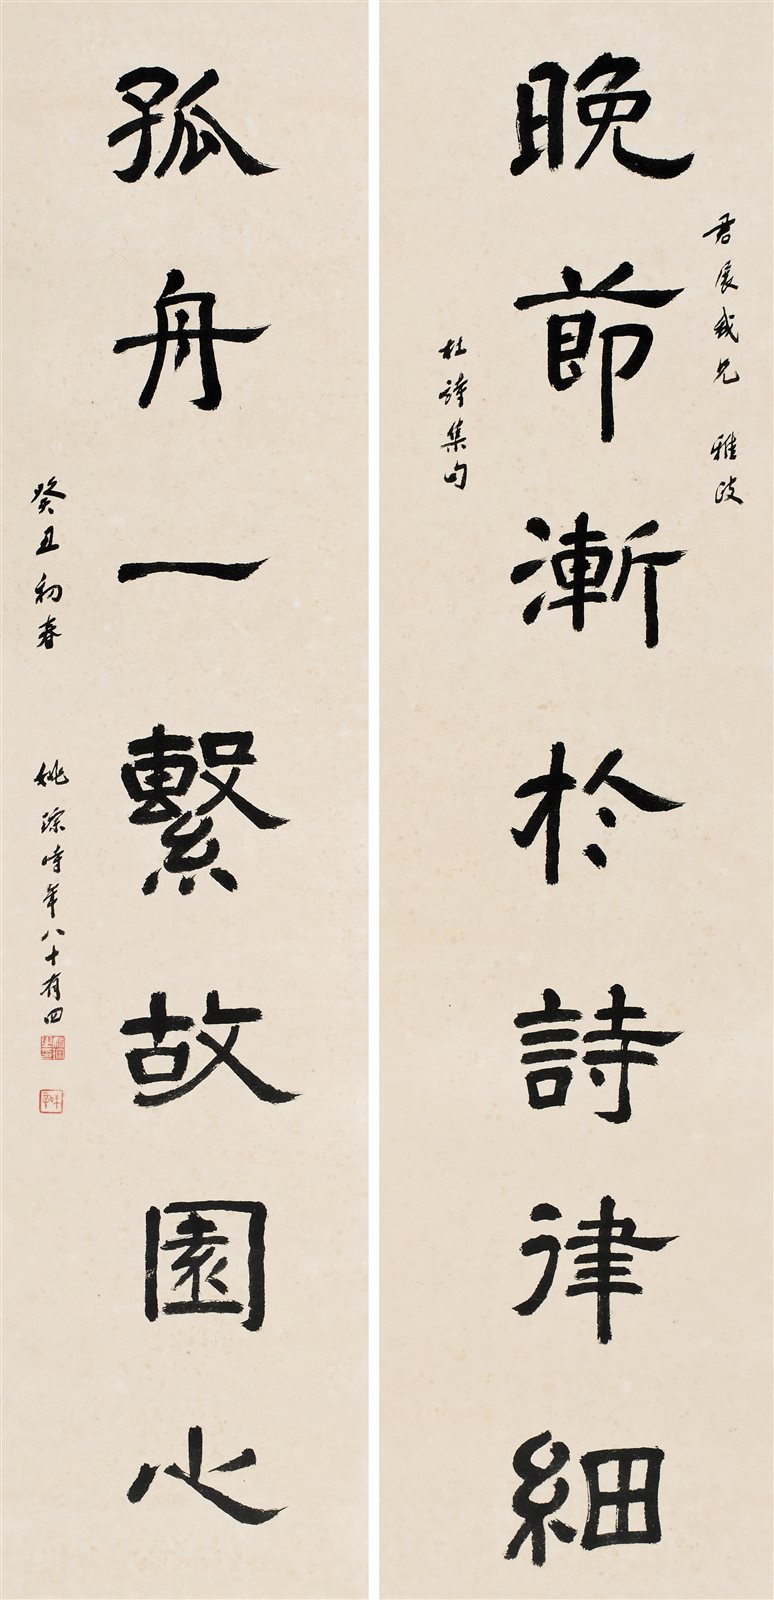 晚節漸於詩律細
君展我兄 雅政
杜詩集句
孤舟一繫故園心
癸丑初春 姚琮時年八十有四